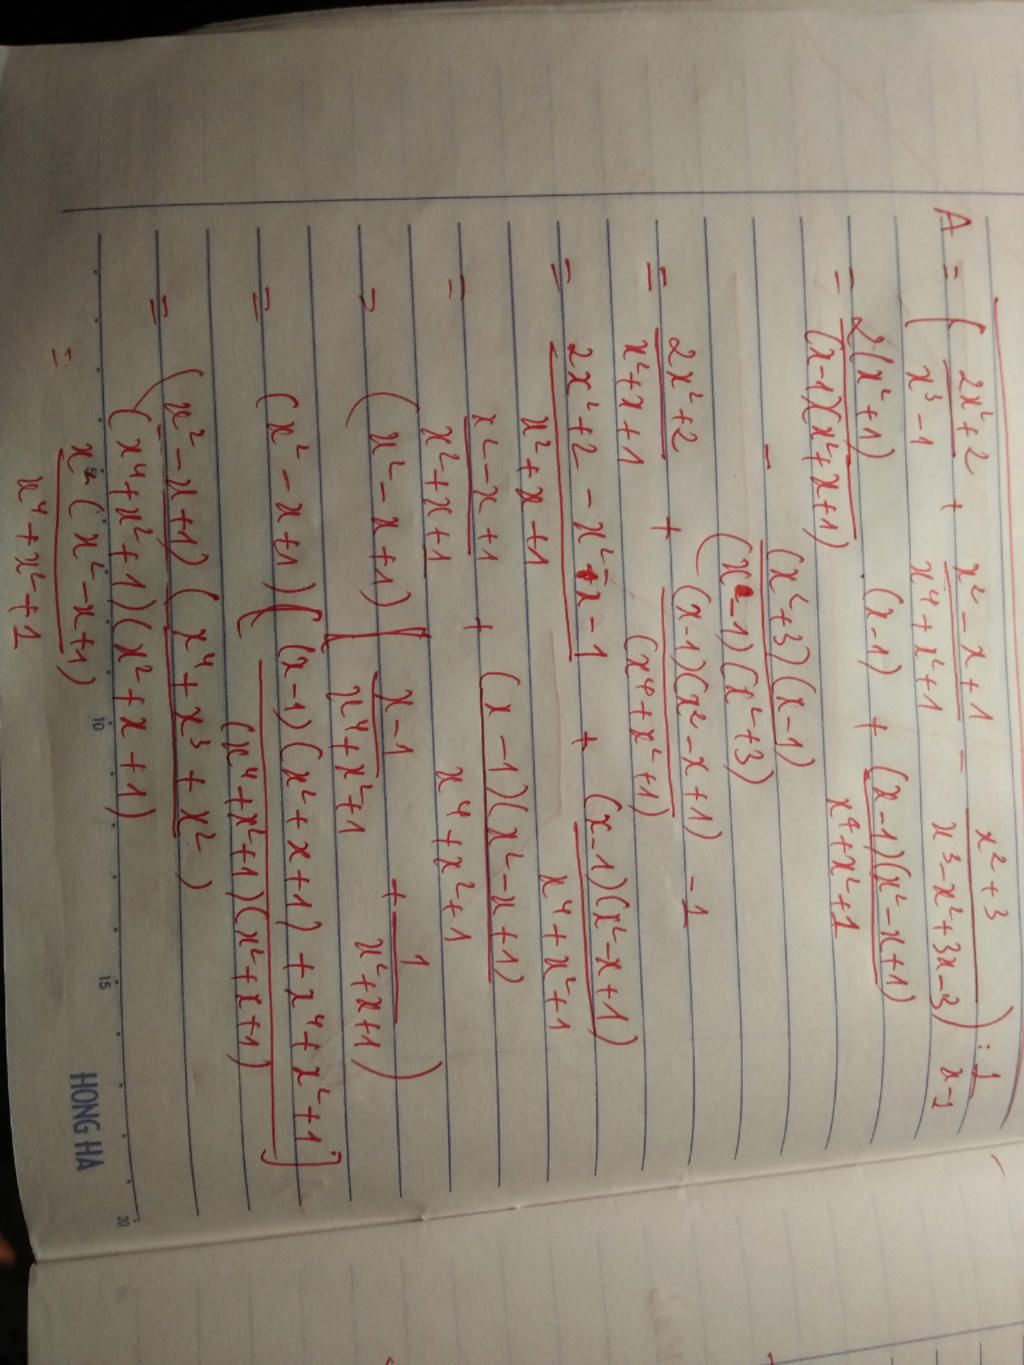 A = ( (2x²+2)/(x³-1) + (x²-x+1)/(x⁴+x²+1) - (x²+3)/(x³-x²+3x-3) ) : 1/(x-1)
= 2(x²+1)/((x-1)(x²+x+1)) . (x-1) + (x-1)(x²-x+1)/(x⁴+x²+1)
- (x²+3)(x-1)/((x-1)(x²+3))
= (2x²+2)/(x²+x+1) + (x-1)(x²-x+1)/(x⁴+x²+1) - 1
= (2x²+2-x²-x-1)/(x²+x+1) + (x-1)(x²-x+1)/(x⁴+x²+1)
= (x²-x+1)/(x²+x+1) + (x-1)(x²-x+1)/(x⁴+x²+1)
= (x²-x+1) ( (x-1)/(x⁴+x²+1) + 1/(x²+x+1) )
= (x²-x+1) [ ((x-1)(x²+x+1)+x⁴+x²+1)/((x⁴+x²+1)(x²+x+1)) ]
= (x²-x+1)(x⁴+x³+x²)/((x⁴+x²+1)(x²+x+1))
= x²(x²-x+1)/(x⁴+x²+1)
10 15 20
HONG HA